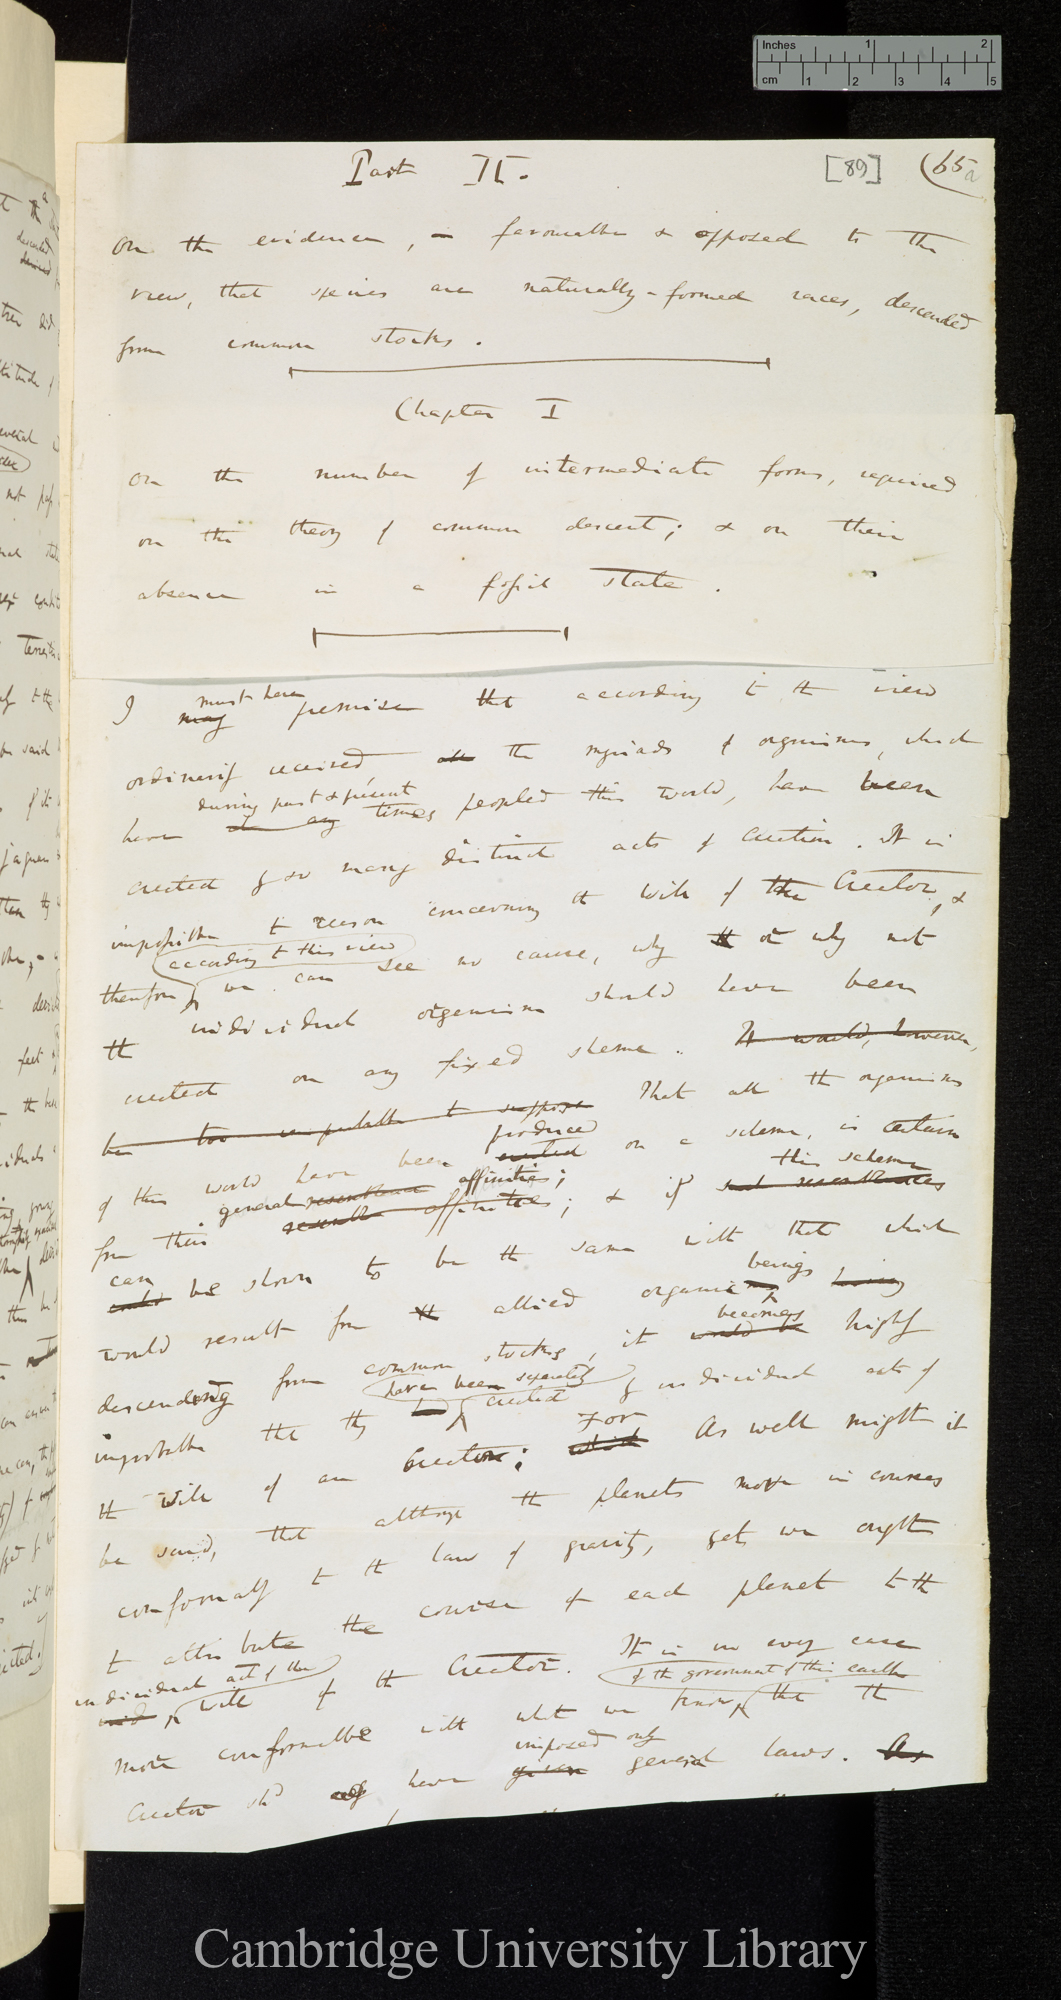 Inches 1 2
cm 1 2 3 4 5
Part II. [89] (65a
On the evidence, – favourable & opposed to the
view, that species are naturally-formed races, descended
from common stocks.
Chapter I
On the number of intermediate forms, required
on the theory of common descent; & on their
absence in a fossil state.
must here
I may premise that according to the view
ordinarily received all the myriads of organisms, which
during past & present
have times peopled this world, have been
created by so many distinct acts of creation. It is
impossible to reason concerning the will of the Creator, &
according to this view
therefore, we can see no cause, why or why not
the individual organism should have been
created on any fixed scheme. It would, however,
be too improbable to suppose That all the organisms
produced
of this world have been created on a scheme, is certain
general resemblance affinities; this scheme
from their resemble affinities; & if such resemblances
can
could be shown to be the same with that which
beings
would result from the allied organic being
becomes
descending from common stocks, it would be highly
have been separately
improbable that they had created by individual acts of
For
the will of an Creator; which As well might it
be said, that although the planets move in courses
conformably to the law of gravity, yet we ought
to attribute the course of each planet to the
individual act of the It is in every case
will of the Creator.
of the government of this earth
more conformable with what we know, that the
imposed only
Creator shd have given general laws. As
Cambridge University Library